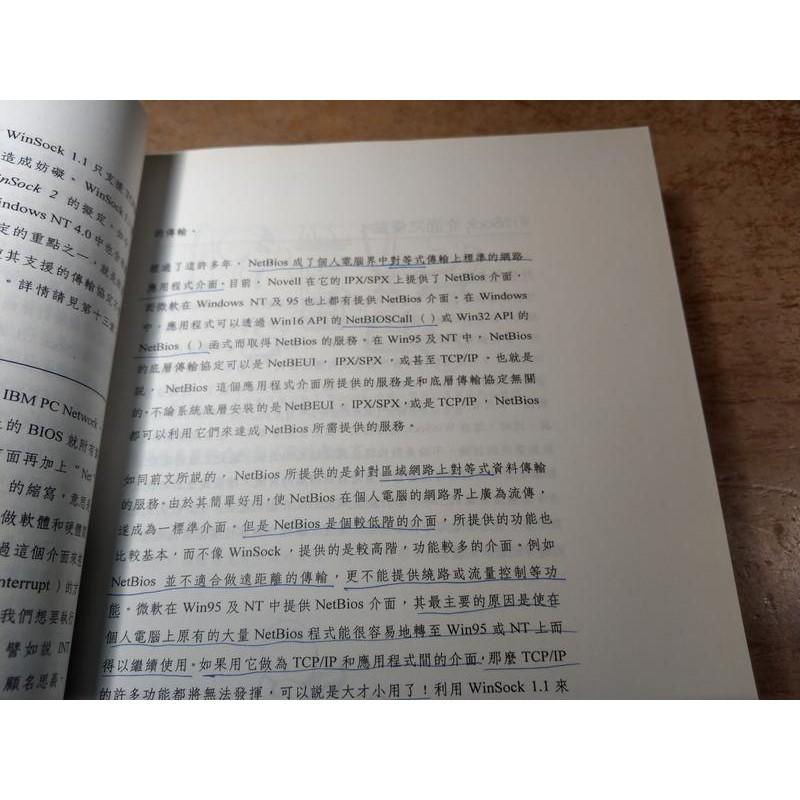 WinSock 1.1 只支援了
造成妨礙。 WinSock
inSock 2 的擬定，
indows NT 4.0 中也
定的重點之一，就是
其支援的傳輸協定
。詳情請見第十三
IBM PC Network
上的 BIOS 就附有
面再加上 “Net
的縮寫，意思
做軟體和硬體
過這個介面來
nterrupt ) 的方
我們想要執行
譬如說 INT
顧名思義，
的傳輸。
經過了這許多年， NetBios 成了個人電腦界中對等式傳輸上標準的網路
應用程式介面。目前， Novell 在它的 IPX/SPX 上提供了 NetBios 介面，
而微軟在 Windows NT 及 95 也上都有提供 NetBios 介面。在 Windows
中，應用程式可以透過 Win16 API 的 NetBIOSCall （ ）或 Win32 API 的
NetBios （ ）函式而取得 NetBios 的服務。在 Win95 及 NT 中， NetBios
的底層傳輸協定可以是 NetBEUI ， IPX/SPX ，或甚至 TCP/IP 。也就是
說， NetBios 這個應用程式介面所提供的服務是和底層傳輸協定無關
的。不論系統底層安裝的是 NetBEUI ， IPX/SPX，或是 TCP/IP ， NetBios
都可以利用它們來達成 NetBios 所需提供的服務。
如同前文所說的， NetBios 所提供的是針對區域網路上對等式資料傳輸
的服務。由於其簡單好用，使 NetBios 在個人電腦的網路界上廣為流傳，
遂成為一標準介面。但是 NetBios 是個較低階的介面，所提供的功能也
比較基本，而不像 WinSock ，提供的是較高階，功能較多的介面。例如
NetBios 並不適合做遠距離的傳輸，更不能提供繞路或流量控制等功
能。微軟在 Win95 及 NT 中提供 NetBios 介面，其最主要的原因是使在
個人電腦上原有的大量 NetBios 程式能很容易地轉至 Win95 或 NT 上而
得以繼續使用。如果用它做為 TCP/IP 和應用程式間的介面，那麼 TCP/IP
的許多功能都將無法發揮，可以說是大才小用了！利用 WinSock 1.1 來